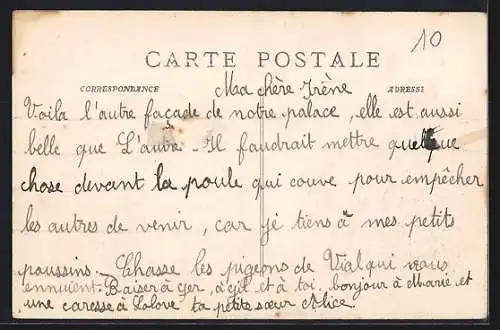 10
CARTE POSTALE
CORRESPONDANCE
ADRESSE
Ma chère Irène
Voila l'autre façade de notre palace, elle est aussi
belle que L'autre - Il faudrait mettre quelque
chose devant la poule qui couve pour empêcher
les autres de venir, car je tiens à mes petits
poussins. Chasse les pigeons de Vial qui vous
ennuient. Baiser à à et à toi, bonjour à Marie et
une caresse à Lolove ta petite sœur Alice.